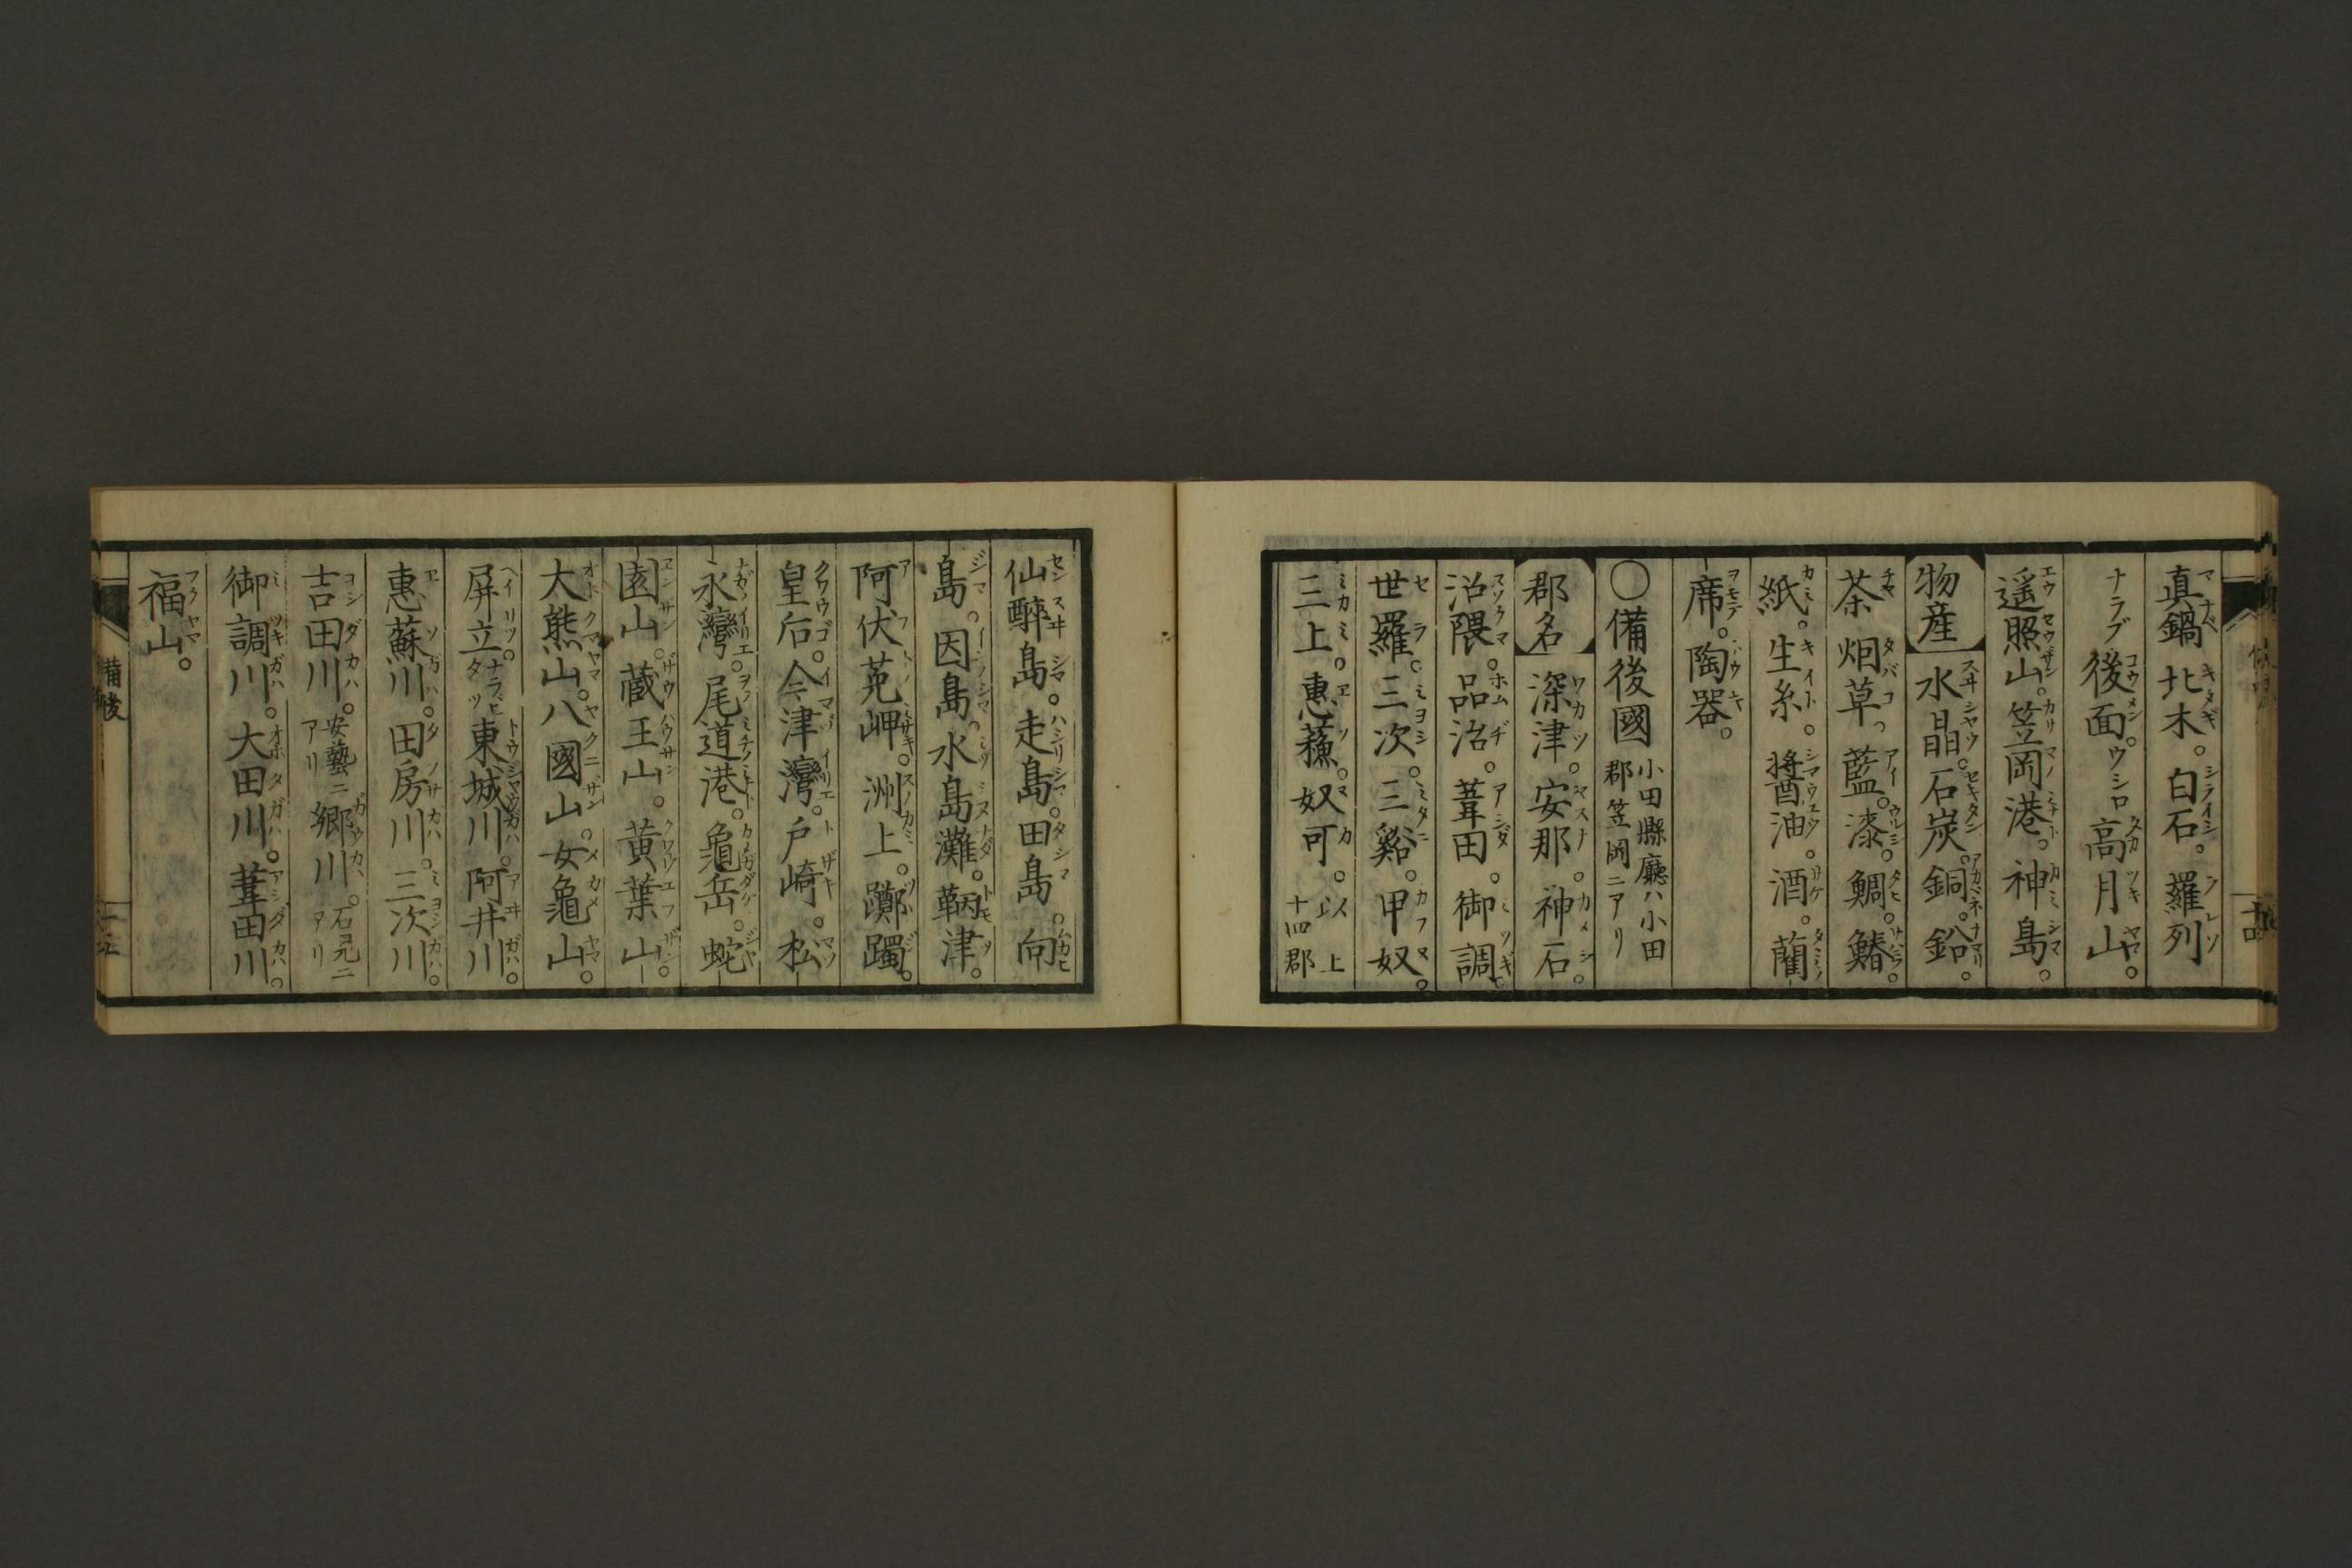 真鍋北木。白石。羅列
ナラブ後面。ウシロ高月山。
遥照山。笠岡港。神島。
物産 水晶。石炭。銅。鉛。
茶 烟草。藍。漆。鯛。鰆。
紙。生糸。醤油。酒。藺
席。陶器。
〇備後國 小田縣廳ハ小田郡笠岡ニアリ
郡名 深津。安那。神石。
沼隈。品治。葦田。御調。
世羅。三次。三谿。甲奴。
三上。惠蘇。奴可。以上十四郡
仙醉島。走島。田島 向
島。因島。水島灘。鞆津。
阿伏莵岬。洲上。躑躅。
皇后。今津灣。戸崎。松
永灣。尾道港。龜岳。蛇
圓山。蔵王山。黄葉山
大熊山。八國山。女龜山。
屏立。ナラビタツ東城川。阿井川
惠蘇川。田房川。三次川。
吉田川。安藝ニアリ郷川。石見ニアリ
御調川。大田川。葦田川。
福山。
備後